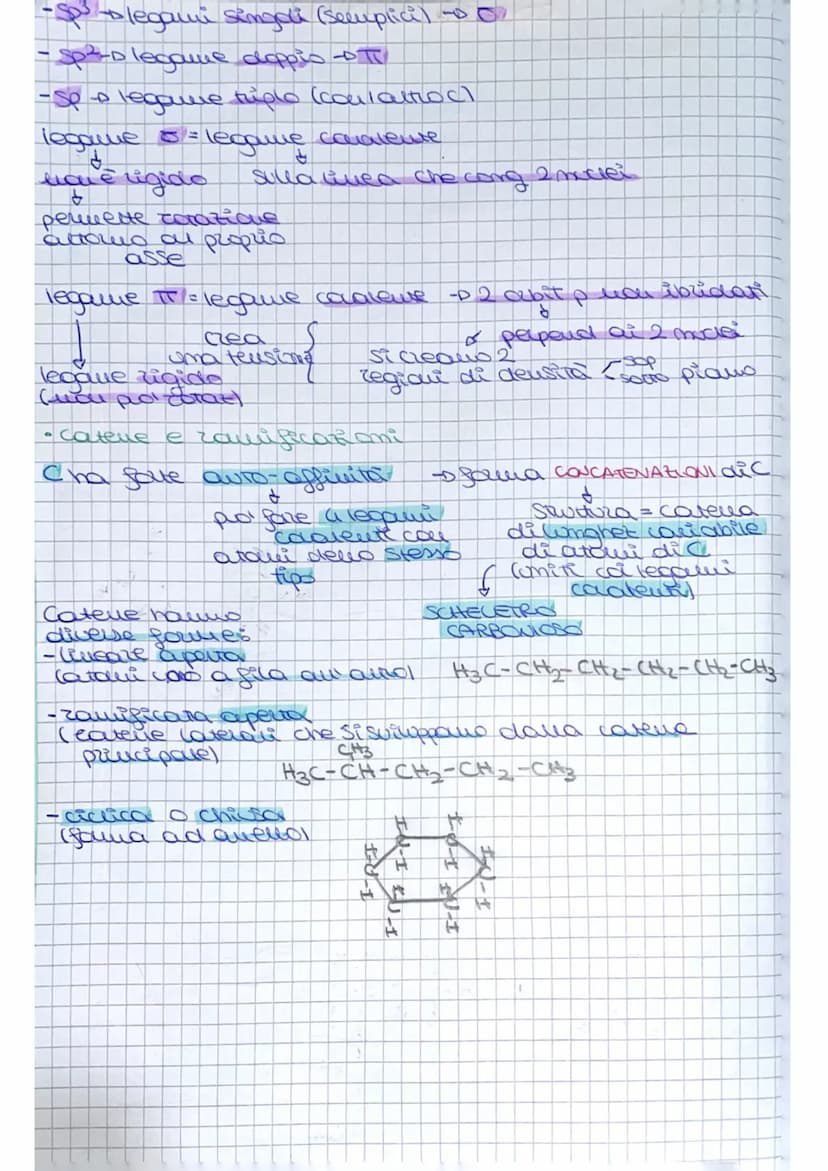 - sp³ → legami singoli (semplici) → σ
- sp² → legame doppio → π
- sp → legame triplo (con l'atmo C)
legame σ = legame covalente
non è rigido sulla linea che cong 2 nuclei
permette rotazione
attorno al proprio
asse
legame π = legame covalente → 2 orbit p non ibridati
crea perpend ai 2 nuclei
una tensione si creano 2
legame rigido regioni di densità sop
sotto piano
(non può rotat)
• catene e ramificazioni
C ha forte auto-affinità → forma CONCATENAZIONI di C
può fare 4 legami struttura = catena
covalenti con di lunghez variabile
atomi dello stesso di atomi di C
tipo (uniti coi legami
covalenti)
Catene hanno SCHELETRO
diverse forme: CARBONIOSO
- lineare aperta
(atomi in fila H₃C-CH₂-CH₂-CH₂-CH₂-CH₃
- ramificata aperta
(catene laterali che si sviluppano dalla catena
principale) CH₃
H₃C-CH-CH₂-CH₂-CH₃
- ciclica o chiusa
(forma ad anello)
H-C-H H-C-H
H-C-H H-C-H
H-C-H H-C-H